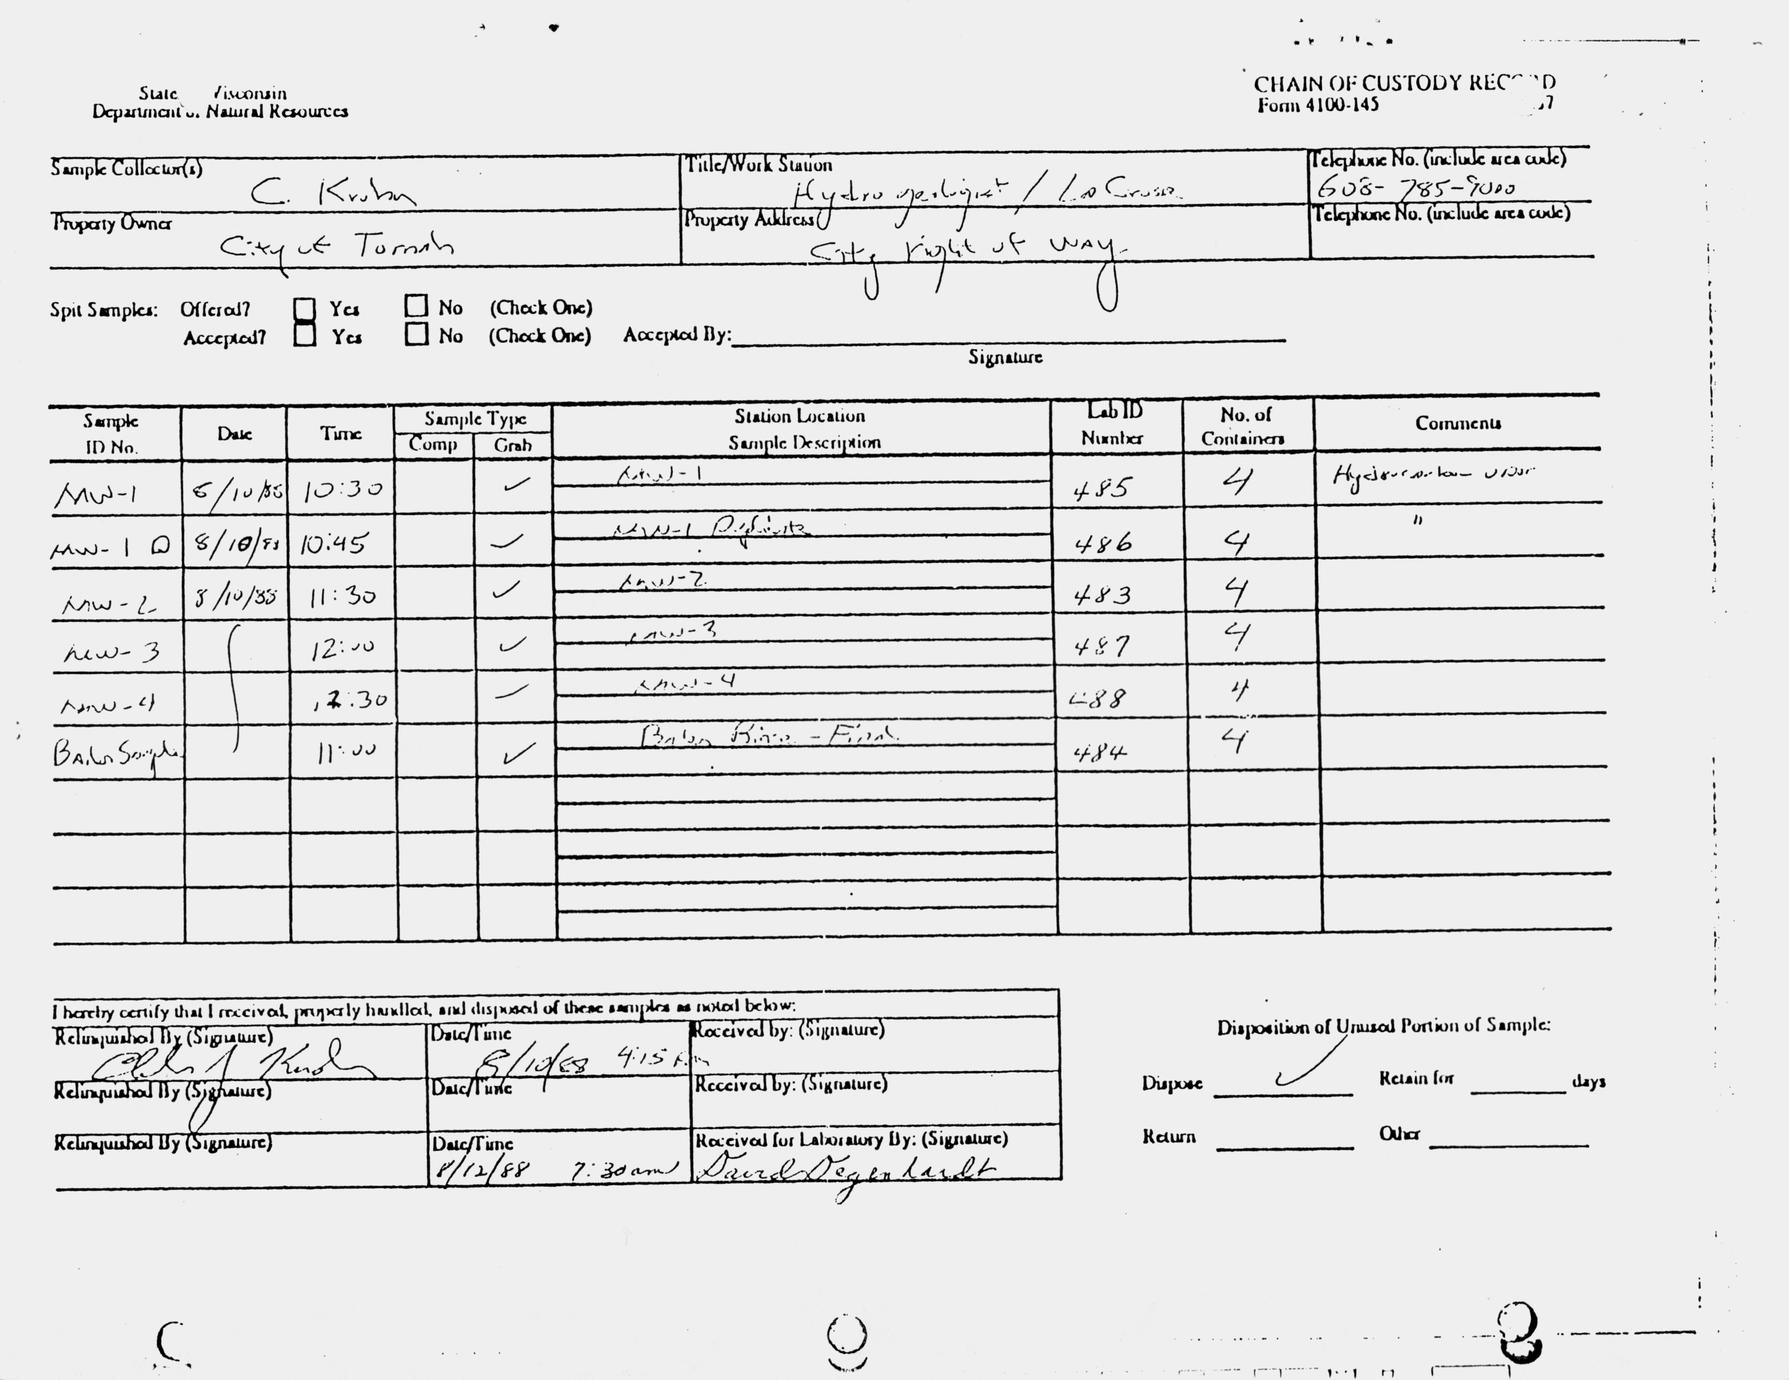 State Wisconsin
Department of Natural Resources
CHAIN OF CUSTODY RECORD
Form 4100-145
Sample Collector(s)
Title/Work Station
Telephone No. (include area code)
C.
Hydrogeologist / La Crosse
608-785-9000
Property Owner
Property Address
Telephone No. (include area code)
City of Tomah
City right of way
Spit Samples: Offered? Yes No (Check One)
Accepted? Yes No (Check One) Accepted By:
Signature
Sample ID No. Date Time Sample Type Comp Grab Station Location Sample Description Lab ID Number No. of Containers Comments
MW-1 8/10/88 10:30 ✓ MW-1 485 4 Hydrocarbon odor
MW-1 D 8/10/88 10:45 ✓ MW-1 Duplicate 486 4 "
MW-2 8/10/88 11:30 ✓ MW-2 483 4
MW-3 12:00 ✓ MW-3 487 4
MW-4 12:30 ✓ MW-4 488 4
Bailer Sample 11:00 ✓ Bailer Rinse - Final 484 4
I hereby certify that I received, properly handled, and disposed of these samples as noted below:
Relinquished By (Signature) Date/Time Received by: (Signature)
8/10/88 4:15 pm
Relinquished By (Signature) Date/Time Received by: (Signature)
Relinquished By (Signature) Date/Time Received for Laboratory By: (Signature)
8/12/88 7:30am David Degenhardt
Disposition of Unused Portion of Sample:
Dispose ✓ Retain for days
Return Other